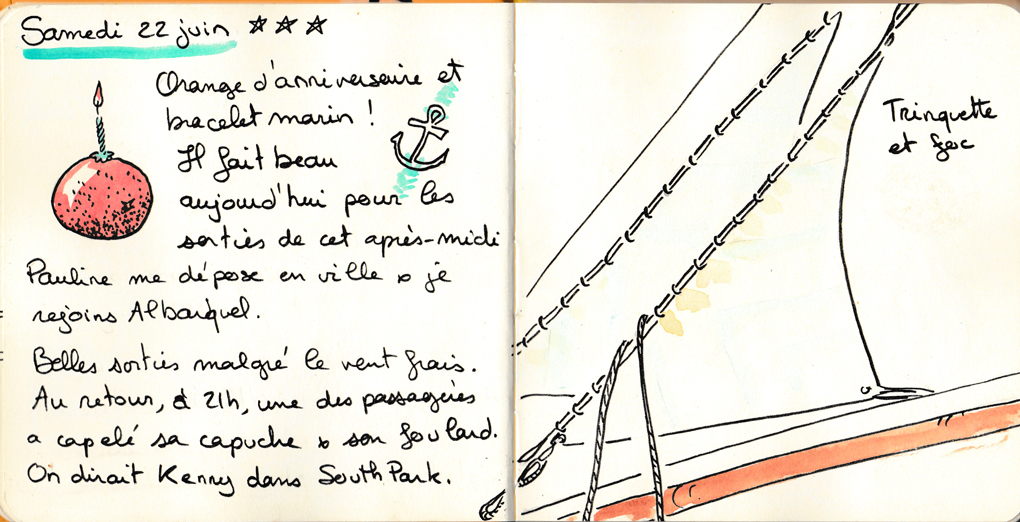 Samedi 22 juin ☆☆☆
Orange d'anniversaire et
bracelet marin !
Il fait beau
aujourd'hui pour les
sorties de cet après-midi
Pauline me dépose en ville & je
rejoins Albarquel.
Belles sorties malgré le vent frais.
Au retour, à 21h, une des passagères
a capelé sa capuche & son foulard.
On dirait Kenny dans South Park.
Trinquette
et foc